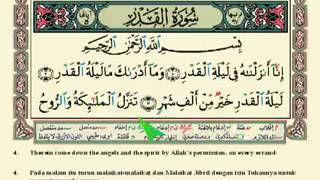 سُورَةُ الْقَدْرِ
بِسْمِ اللَّهِ الرَّحْمَٰنِ الرَّحِيمِ
إِنَّا أَنزَلْنَاهُ فِي لَيْلَةِ الْقَدْرِ ۝١ وَمَا أَدْرَاكَ مَا لَيْلَةُ الْقَدْرِ ۝٢
لَيْلَةُ الْقَدْرِ خَيْرٌ مِّنْ أَلْفِ شَهْرٍ ۝٣ تَنَزَّلُ الْمَلَائِكَةُ وَالرُّوحُ
4. Therein come down the angels and the spirit by Allah's permission, on every errand:
4. Pada malam itu turun malaikat-malaikat dan Malaikat Jibril dengan izin Tuhannya untuk